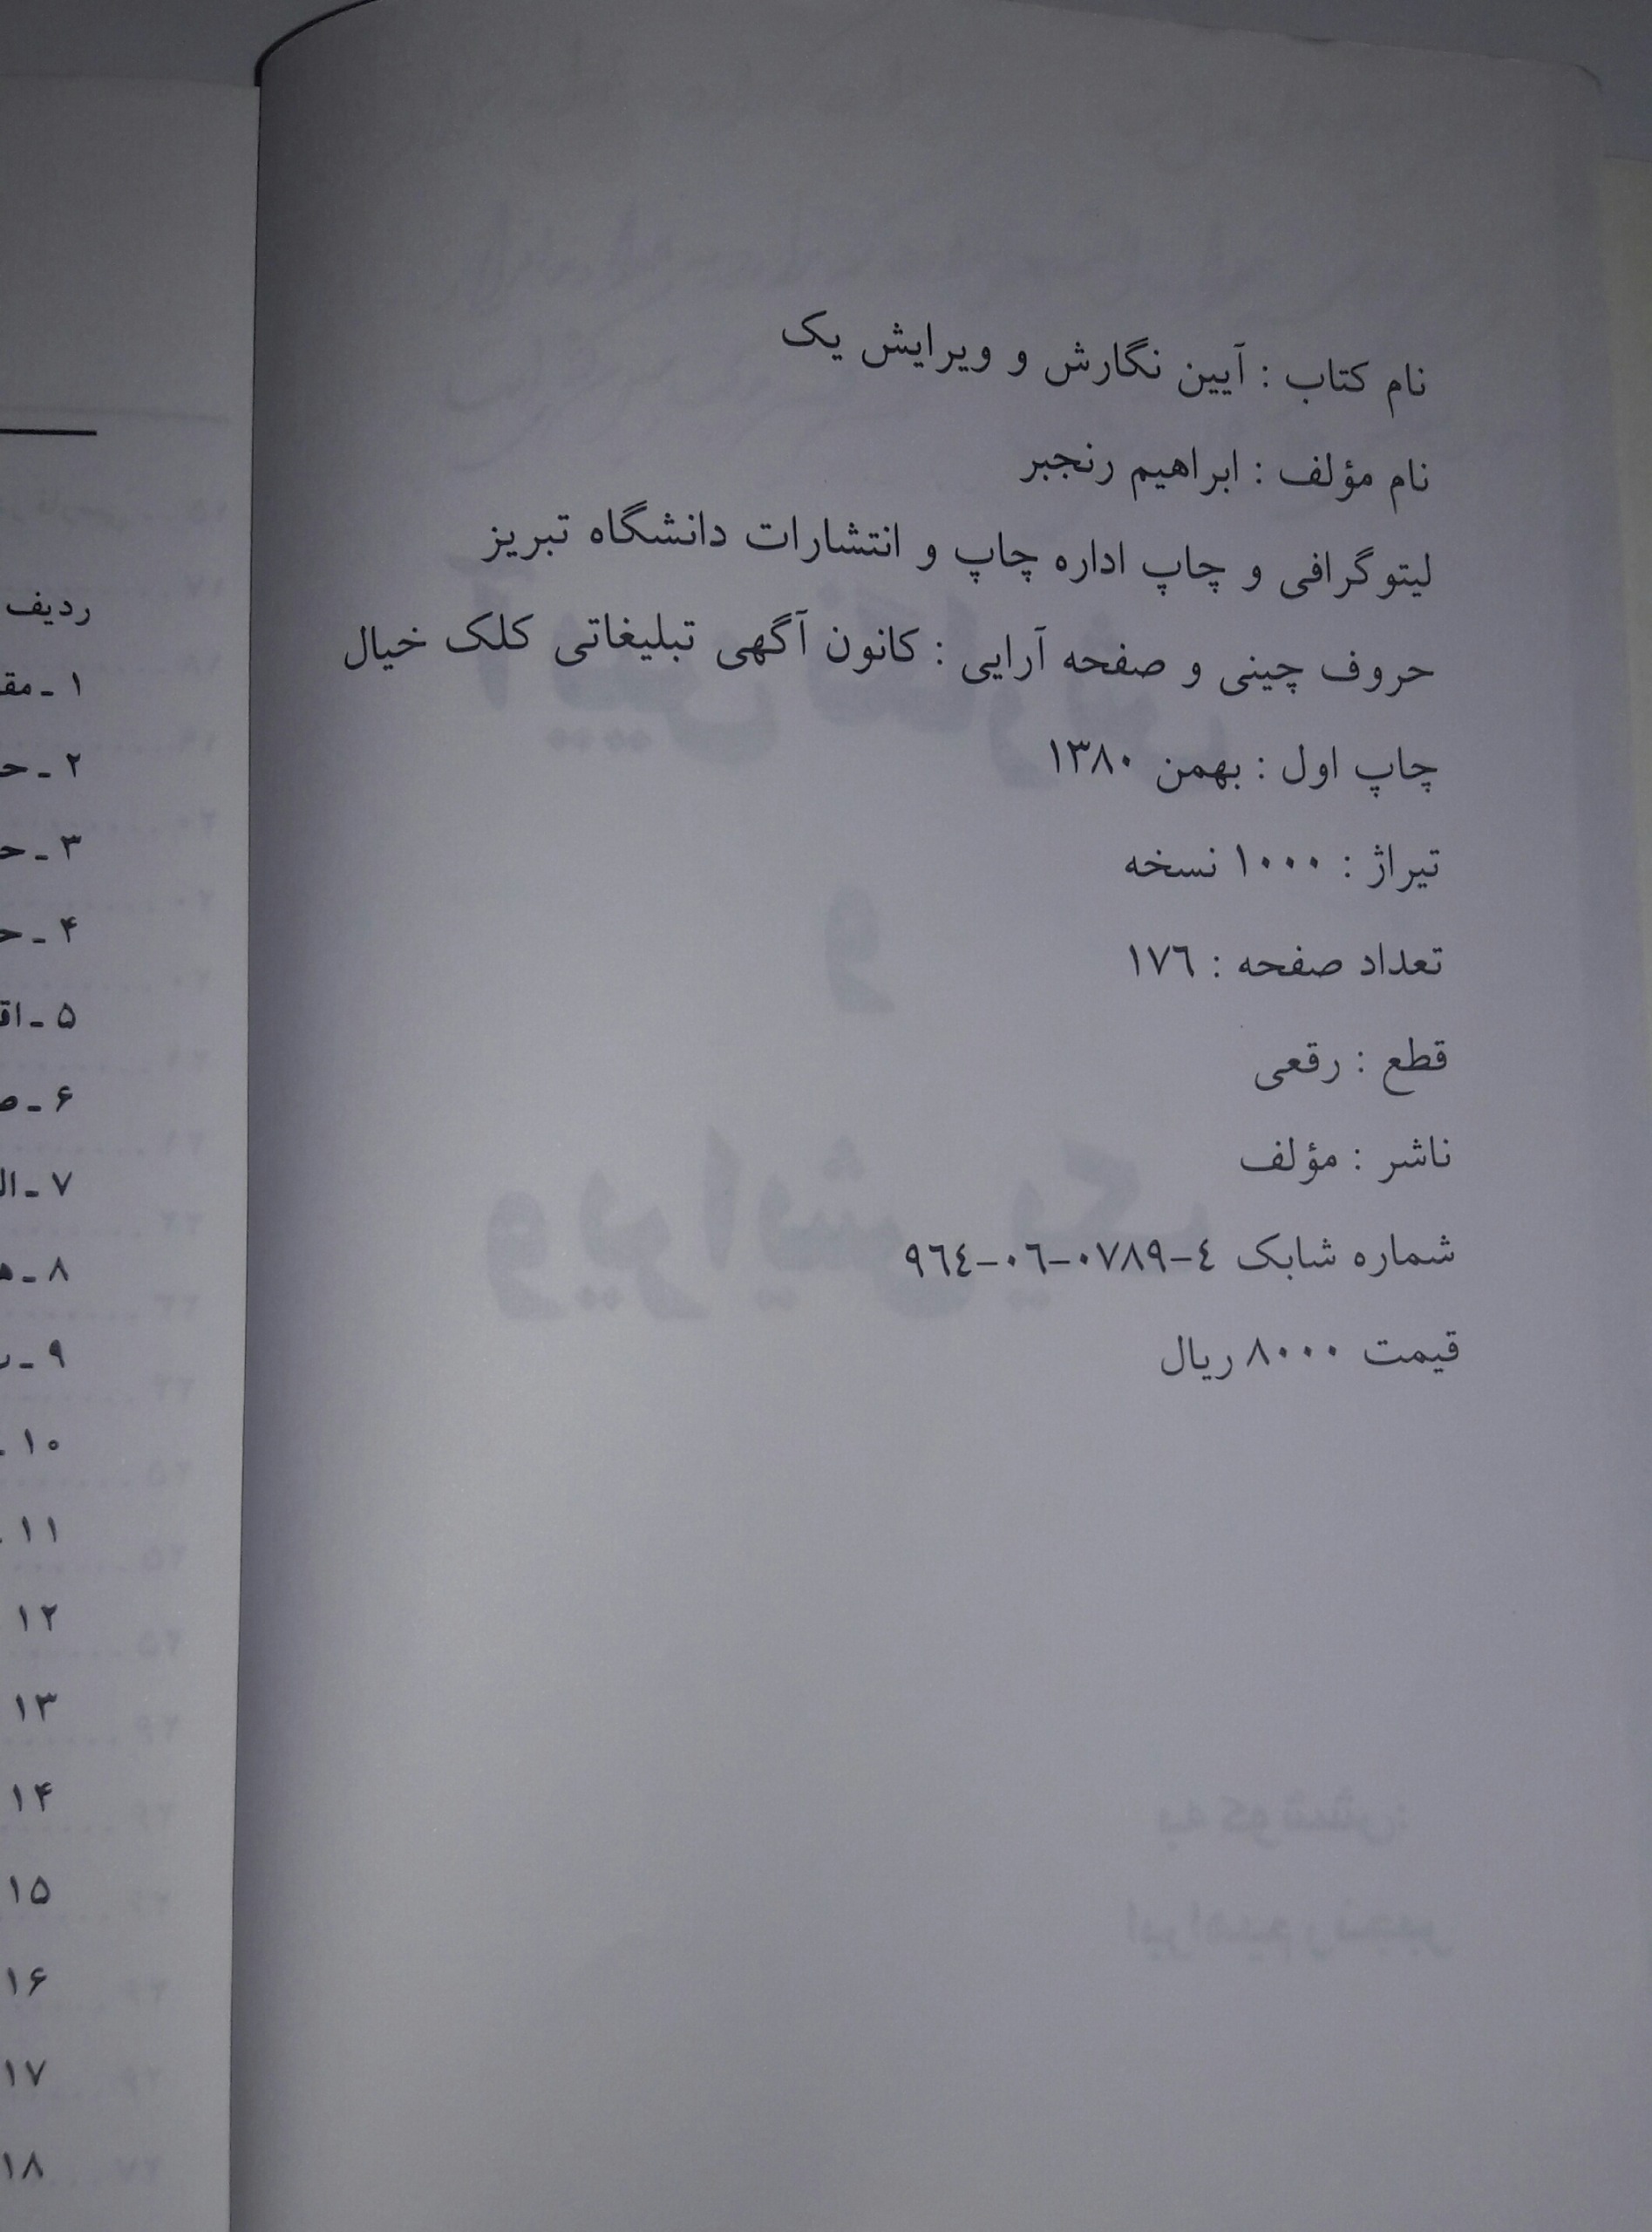 نام کتاب : آیین نگارش و ویرایش یک
نام مؤلف : ابراهیم رنجبر
لیتوگرافی و چاپ اداره چاپ و انتشارات دانشگاه تبریز
حروف چینی و صفحه آرایی : کانون آگهی تبلیغاتی کلک خیال
چاپ اول : بهمن ۱۳۸۰
تیراژ : ۱۰۰۰ نسخه
تعداد صفحه : ١٧٦
قطع : رقعی
ناشر : مؤلف
شماره شابک ٤-٠٧٨٩-٠٦-٩٦٤
قیمت ۸۰۰۰ ریال
ردیف
۱ ـ
۲ ـ
۳ ـ
۴ ـ
۵ ـ
۶ ـ
۷ ـ
۸ ـ
۹ ـ
۱۰
۱۱
۱۲
۱۳
۱۴
۱۵
۱۶
۱۷
۱۸